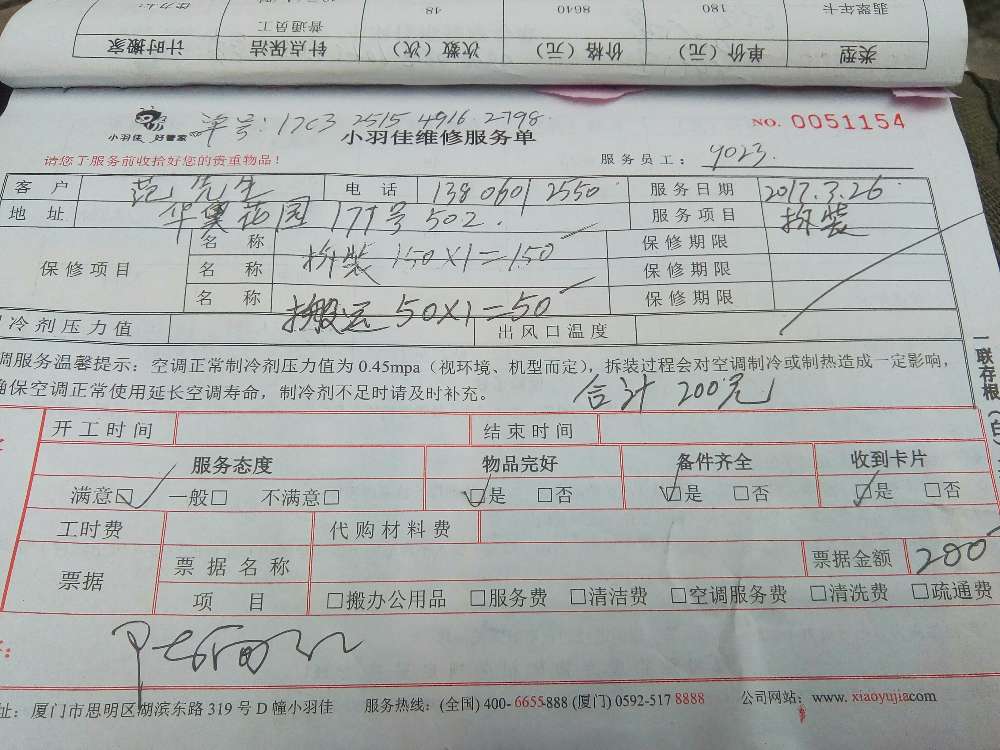 类型 单价（元） 价格（元） 次数（次） 钟点保洁 计时搬家
翡翠年卡 180 8640 48 普通员工
小羽佳 好管家 单号: 17C3 2515 4916 2798
小羽佳维修服务单 NO. 0051154
请您了服务前收拾好您的贵重物品！ 服务员工： 9023
客 户 范先生 电 话 13806012550 服务日期 2017.3.26
地 址 华昊花园 171号 502 服务项目 拆装
保修项目 名 称 拆装 150X1=150 保修期限
名 称 保修期限
名 称 搬运 50X1=50 保修期限
冷剂压力值 出风口温度
调服务温馨提示：空调正常制冷剂压力值为 0.45mpa（视环境、机型而定），拆装过程会对空调制冷或制热造成一定影响，
确保空调正常使用延长空调寿命，制冷剂不足时请及时补充。 合计 200元
一联存根（白）
开工时间 结束时间
服务态度 物品完好 备件齐全 收到卡片
满意☑ 一般□ 不满意□ ☑是 □否 ☑是 □否 ☑是 □否
工时费 代购材料费
票据 票据名称 票据金额 200
项 目 □搬办公用品 □服务费 □清洁费 □空调服务费 □清洗费 □疏通费
址：厦门市思明区湖滨东路 319 号 D 幢小羽佳 服务热线：(全国) 400-6655-888 (厦门) 0592-517 8888 公司网站：www. xiaoyujia.com